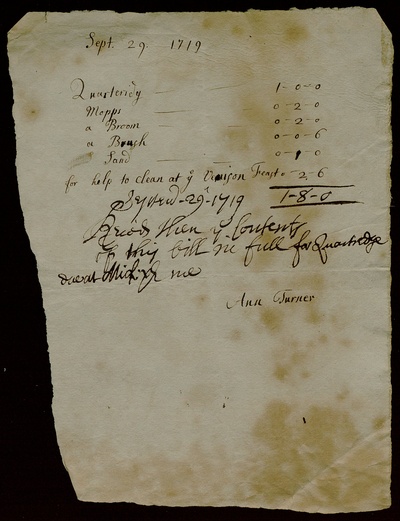 Sept. 29. 1719
Quarteridg — 1-0-0
Mopps — 0-2-0
a Broom — 0-2-0
a Brush — 0-0-6
Sand — 0-1-0
for help to clean at ye Venison Feast 0-2-6
1-8-0
29 1719
then ye Content
of this bill in full for Quartredge
me
Ann Turner